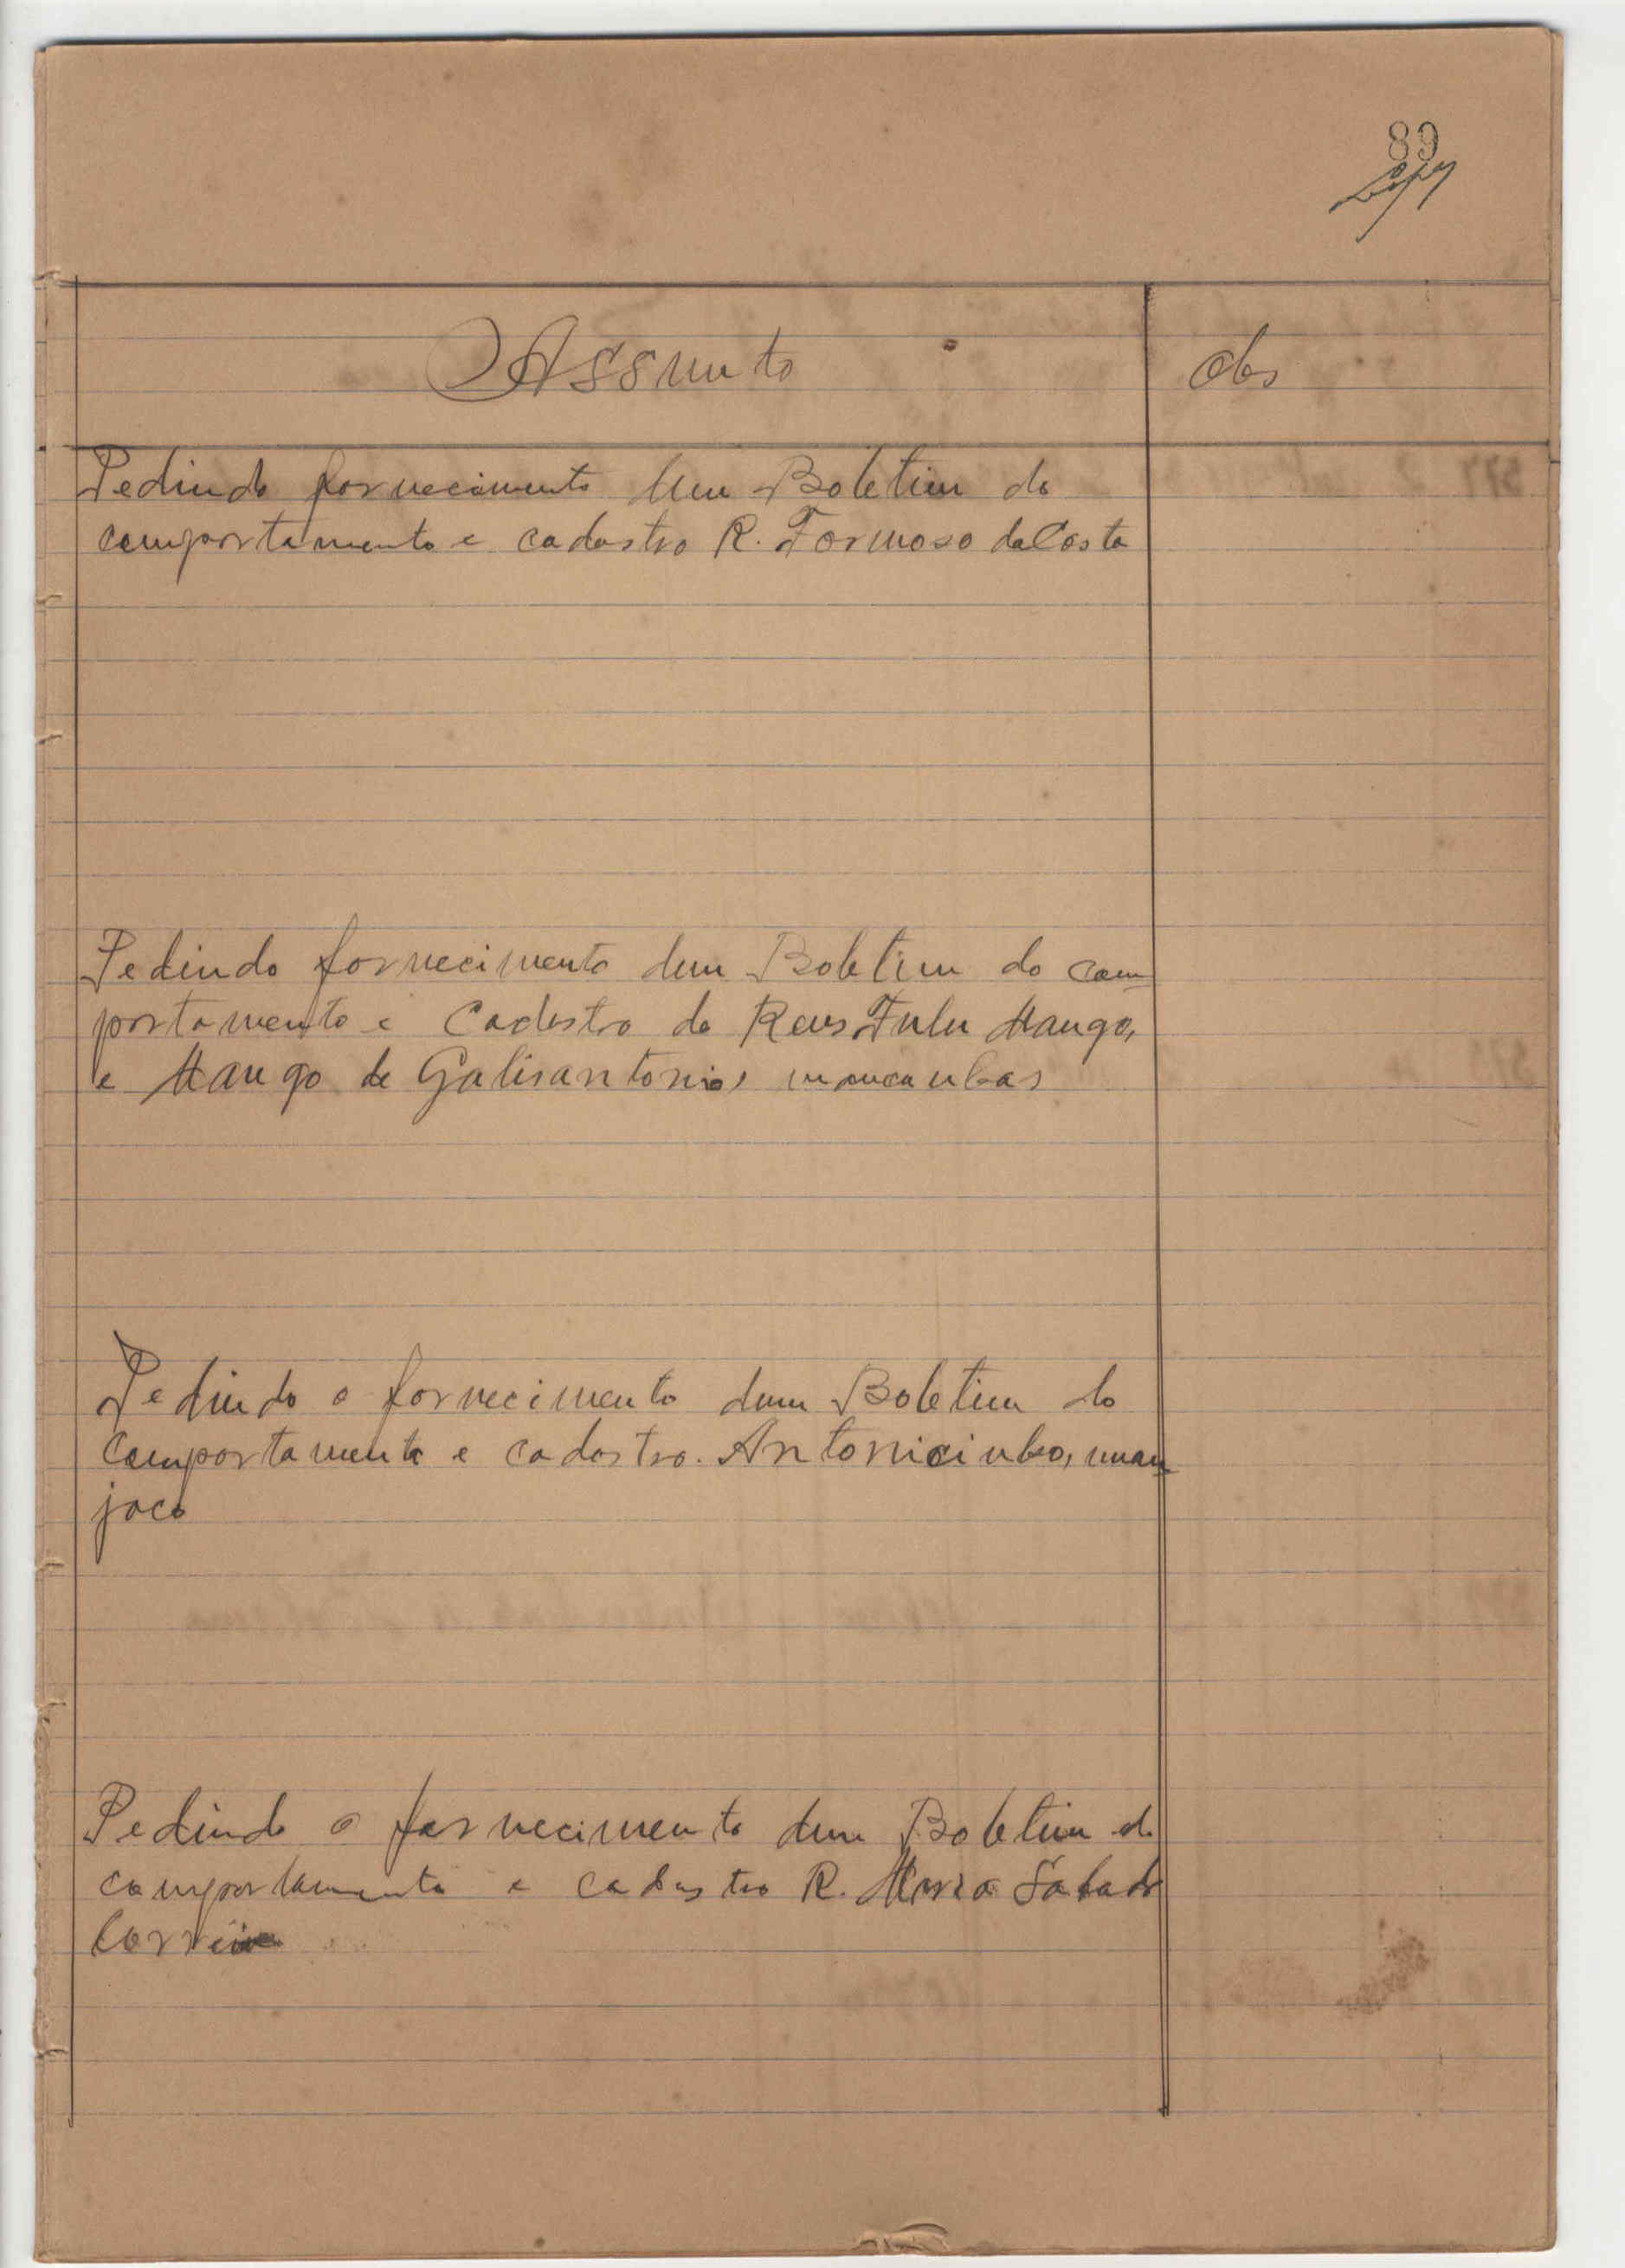 89
Assunto
Obs
Pedindo fornecimento dum Boletim do
comportamento e cadastro R. Formoso da Costa
Pedindo fornecimento dum Boletim do com
portamento e Cadastro do Reus Fulu Mango,
e Mango de Galisantonio,
Pedindo o fornecimento dum Boletim do
comportamento e cadastro. Antonicinho, man
jaco
Pedindo o fornecimento dum Boletim do
comportamento e cadastro R. Maria Sabado
Correia